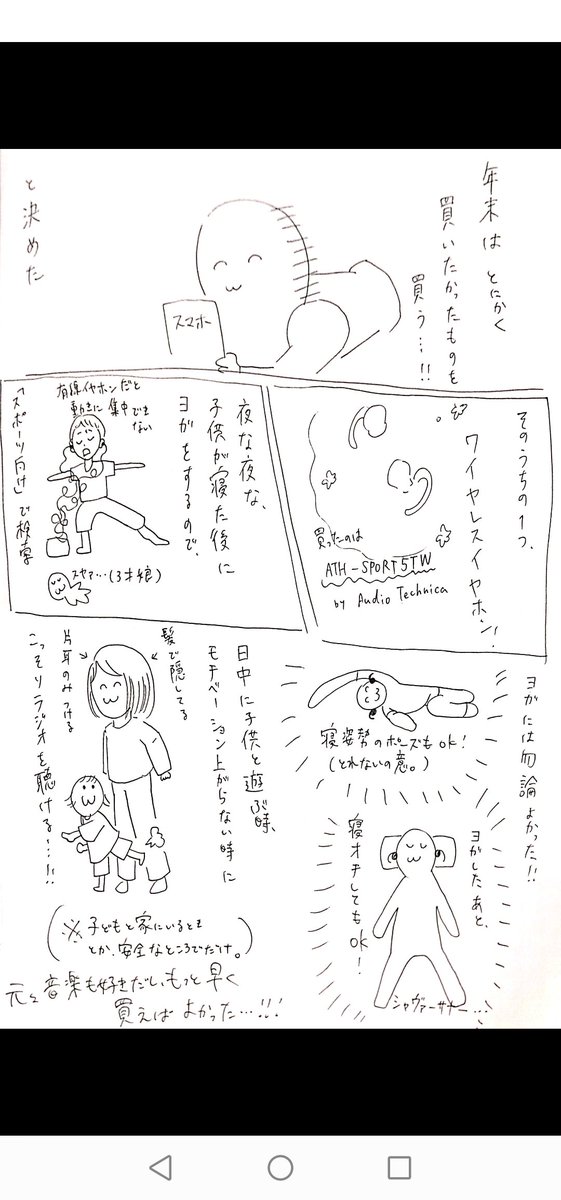 年末は とにかく
買いたかったものを
買う…!!
と決めた
スマホ
そのうちの1つ、
ワイヤレスイヤホン!
買ったのは
ATH-SPORT5TW
by Audio Technica
夜な夜な、
子供が寝た後に
ヨガをするので、
有線イヤホンだと
動きに集中でき
ない
スヤァ…(3才娘)
「スポーツ向け」で検索
ヨガには勿論よかった!!
寝姿勢のポーズもok!
(とれないの意。)
ヨガしたあと、
寝オチしてもok!
シャヴァーサナー…
日中に子供と遊ぶ時、
モチベーション上がらない時に
髪で隠してる
片耳のみつける
こっそりラジオを聴ける…!!
(※子どもと家にいるとき
とか、安全なところでだけ。)
元々音楽も好きだし、もっと早く
買えばよかった…!!!